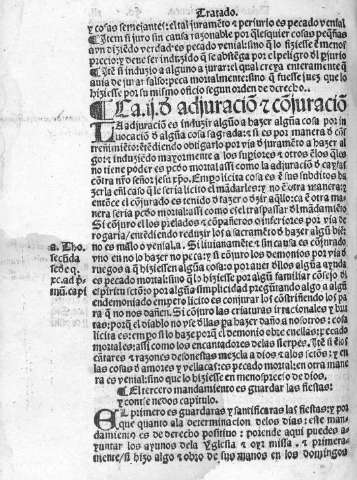 Tratado.
y cosas semejantes: el tal juramẽto e perjurio es pecado venial
¶ Itẽ si juro sin causa razonable por q̃lesquier cosas peq̃ñas
avn diziẽdo verdad: es pecado venial: sino q̃ lo fiziesse ẽ menos
precio: y deue ser induzido q̃ se abstẽga por el peligro d'l pjurio
¶ Itẽ si induzio a alguno a jurar: el qual creya enteramente q̃
auia de jurar falso: peca mortalmente: sino q̃ fuesse juez que lo
hiziesse por su mismo oficio segun orden de derecho..
¶ La .ij. d' adjuraciõ e cõjuraciõ
La adjuracion es induzir algũo a hazer algũa cosa por in
uocaciõ d' algũa cosa sagrada: e si es por manera d' cõ
treñimiẽto: entẽdiendo obligarlo por via d' juramẽto a hazer al
go: e induziẽdo mayormente a los supiores e otros en los q̃les
no tiene poder es pc̃do mortal
tra nr̃o señor: jesu xp̃o. Empo licita cosa es e sus subditos ha
zerla en el caso q̃ le seria licito el mãdarles: y no e otra manera:
entõce el conjurado es tenido d' fazer o dezir aq̃llo: ca e otra ma
nera seria pc̃do mortal: assi como es el traspassar d'l mãdamiẽto
Si cõjuro el los prelados e cõpañeros o inferiores por via de
rogaria: entẽdiendo reduzir los a sacramẽto d' hazer algũ biẽ:
no es malo o venial. Si liuianamẽte e sin causa es cõjurado
vno en no lo hazer no peca: y si cõjuro los demonios por via d'
ruegos a q̃ hiziessen algũa cosa: o por auer dellos algũa ayuda
es pecado mortal: sino q̃ lo hiziesse por algũ familiar cõsejo d'l
espiritu sct̃o: o por algũa simplicidad pregũtando algo a algũ
endemoniado empero licito es conjurar los cõstriñendo los pa
ra q̃ no nos dañen. Si cõjuro las criaturas irracionales y bru
tas: porq̃ el diablo no vse dellas pa hazer daño a nosotros: cosa
licita es: empo si lo haze porq̃ el demonio obre en ellas: es pecado
mortal: assi como los encantadores delas sierpes. Itẽ si dixo
cãtares e razones desonestas mezcla a dios e alos sctõs: y en
las cosas d' amores y vellacas: es pecado mortal: en otra mane
ra es venial: sino que lo hiziesse en menosprecio de dios.
¶ El tercero mandamiento es guardar las fiestas:
y contiene dos capitulos.
El primero es guardar as y santificar as las fiestas: y por
que quanto ala determinacion delos dias: este man
damiento es de derecho positiuo: por ende aqui puedes a-
yuntar los ayunos dela Yglesia e oyr missa. e primera-
mente/si hizo algo e obro de sus manos en los domingos
a. Tho.
secũda